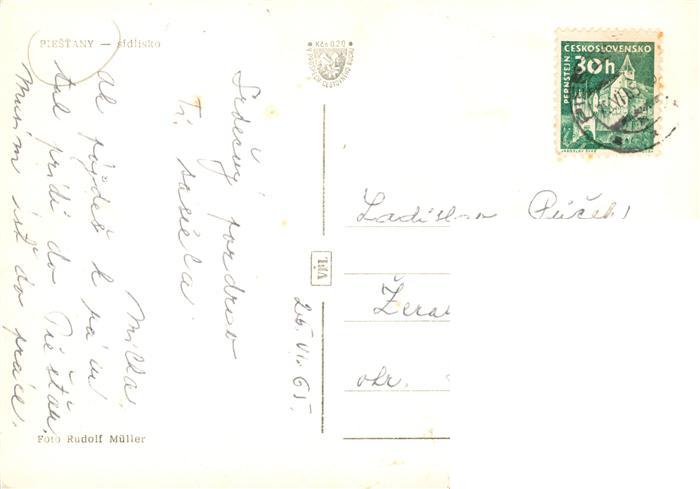 PIEŠŤANY — sídlisko
Kčs 0,20
Srdečný pozdrav
Ti zasiela
Milka.
Ak pôjdeš k nám
tak prídi do Piešťan.
Musím ísť do práce.
26. VI. 65.
Foto Rudolf Müller
ČESKOSLOVENSKO
30h
PERNŠTEJN
Ladislav
Žera
okr.